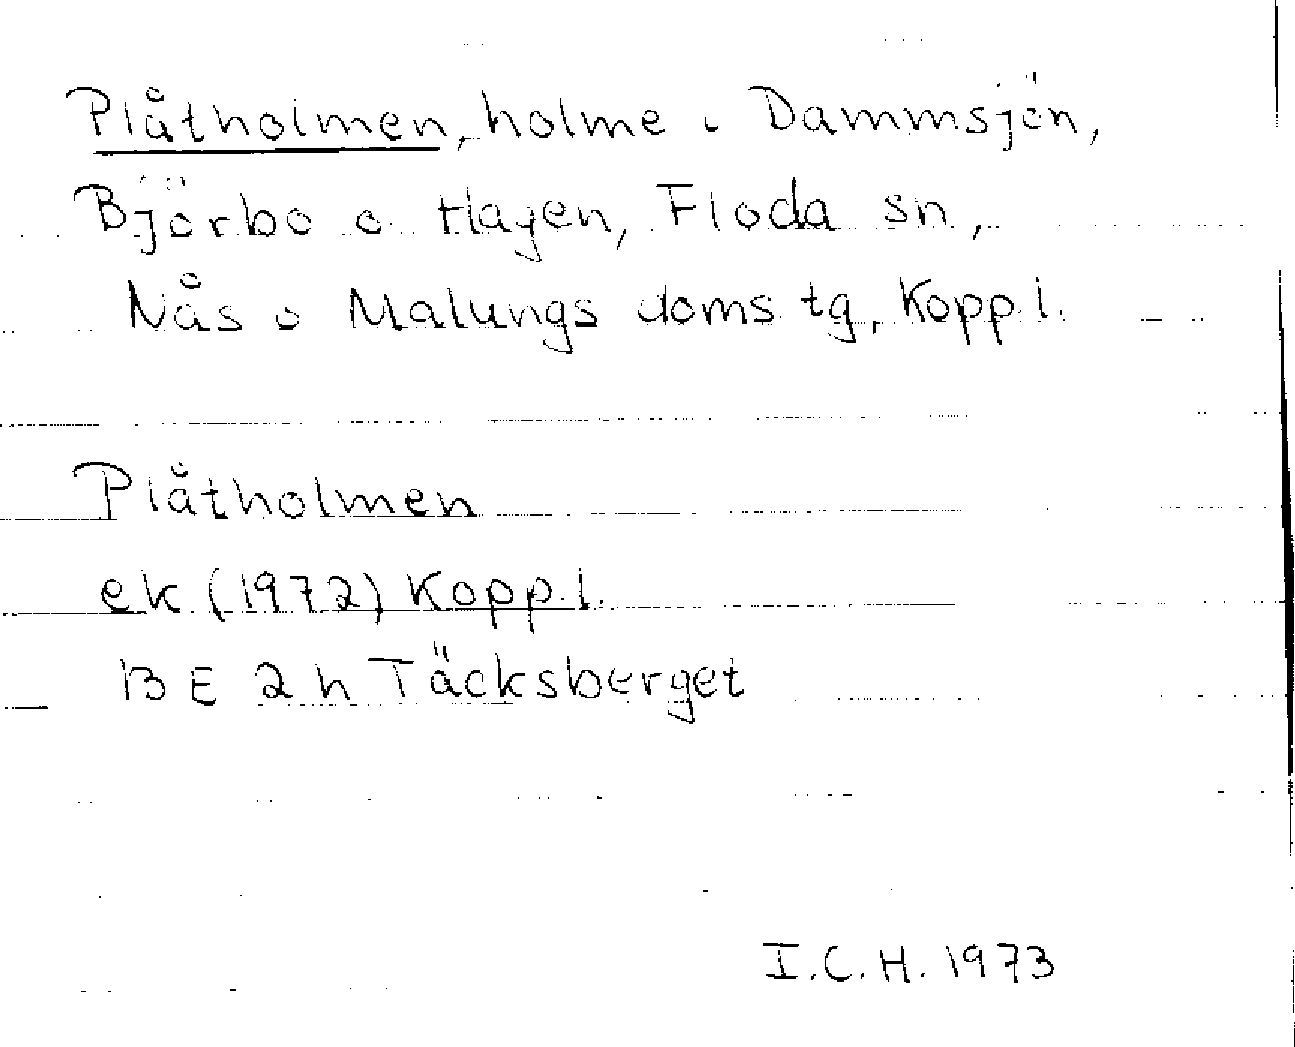 Plåtholmen, holme i Dammsjön,
Björbo o. Hagen, Floda sn,
Nås o Malungs doms tg, Kopp. l.
Plåtholmen
ek (1972) Kopp. l.
13 E 2 h Täcksberget
I.C.H. 1973